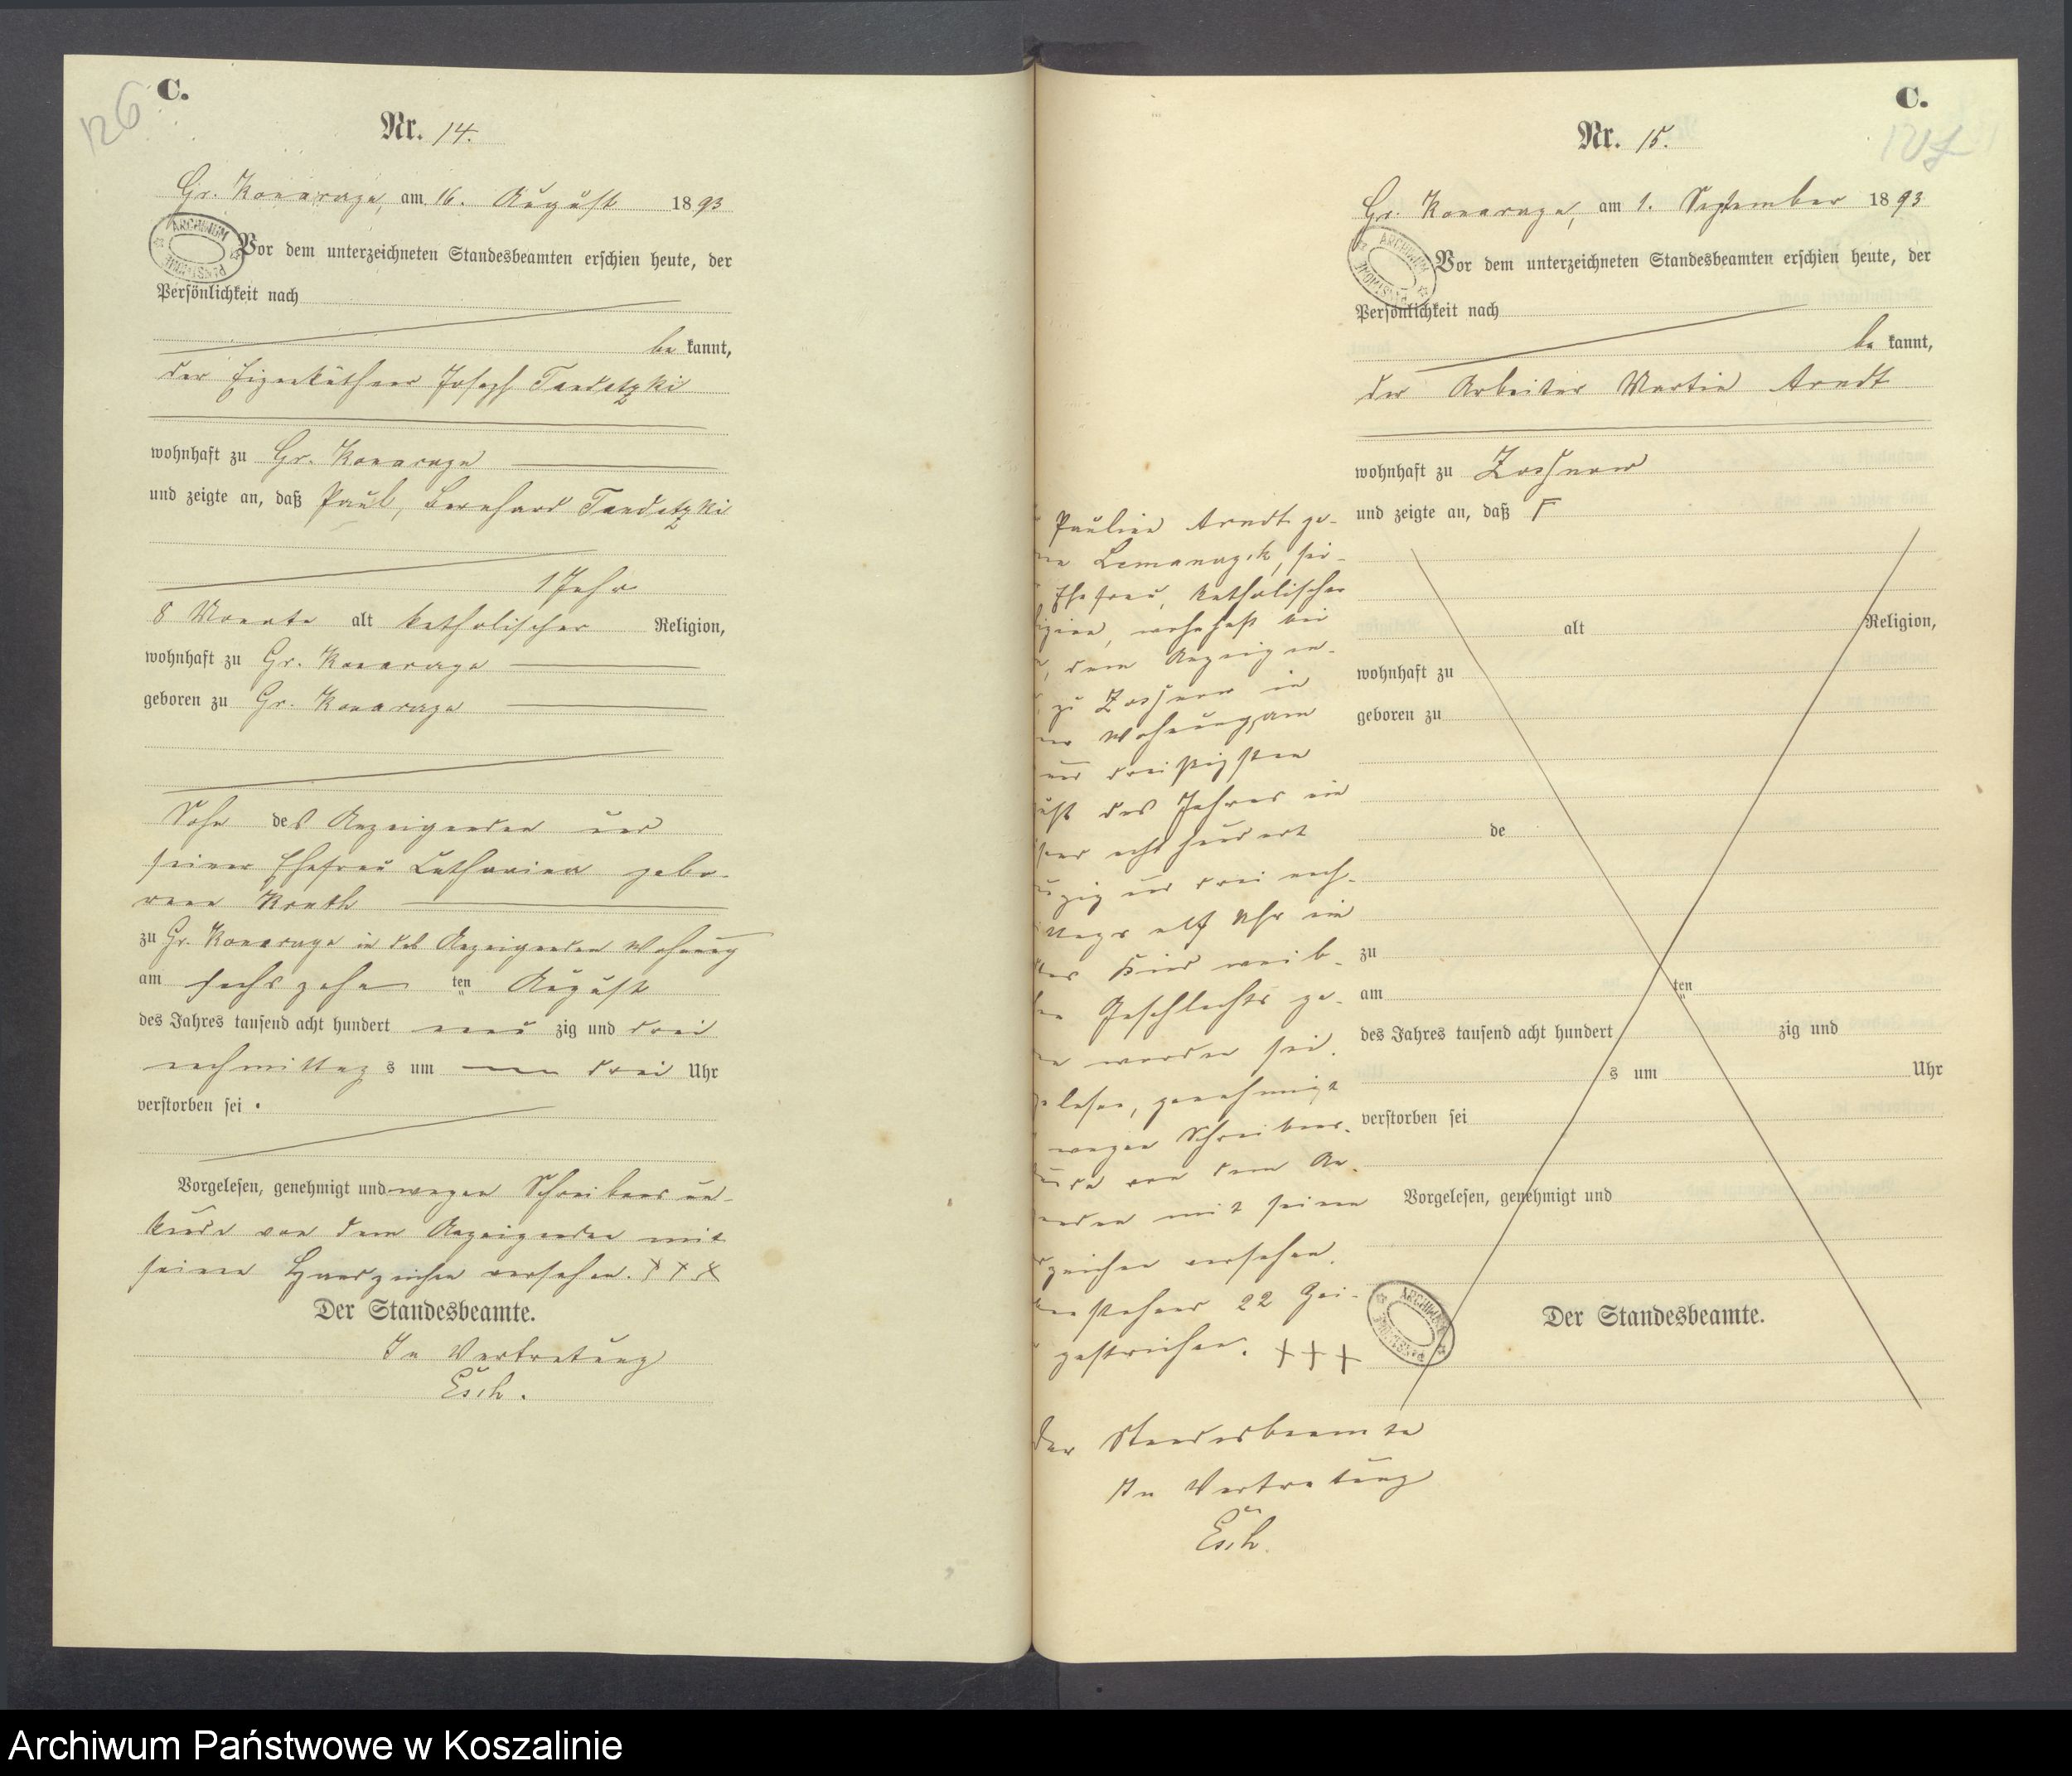 126
C.
Nr. 14.
Gr. Konarczyn, am 16. August 1893
Vor dem unterzeichneten Standesbeamten erschien heute, der
Persönlichkeit nach
be kannt,
der Eigenkäthner Joseph Tandetzki
wohnhaft zu Gr. Konarczyn
und zeigte an, daß Paul, Bernhard Tandetzki
1 Jahr
8 Monate alt katholischer Religion,
wohnhaft zu Gr. Konarczyn
geboren zu Gr. Konarczyn
Sohn des Anzeigenden und
seiner Ehefrau Catharina gebo-
rene
zu Gr. Konarczyn in des Anzeigenden Wohnung
am sechszehn ten August
des Jahres tausend acht hundert neun zig und drei
nachmittag s um drei Uhr
verstorben sei.
Vorgelesen, genehmigt und wegen Schreibens un-
kunde von dem Anzeigenden mit
seinem Handzeichen versehen. XXX
Der Standesbeamte.
In Vertretung
Esch.
C.
Nr. 15.
Gr. Konarczyn, am 1. September 1893
Vor dem unterzeichneten Standesbeamten erschien heute, der
Persönlichkeit nach
be kannt,
der Arbeiter Martin Arndt
wohnhaft zu
und zeigte an, daß F
alt Religion,
wohnhaft zu
geboren zu
de
zu
am ten
des Jahres tausend acht hundert zig und
s um Uhr
verstorben sei
Vorgelesen, genehmigt und
Der Standesbeamte.
Pauline Arndt ge-
sei-
Ehefrau, katholischer
wohnhaft bei
dem Anzeigen-
zu in
Wohnung am
und dreißigsten
des Jahres ein
acht hundert
zig und drei nach-
ttags elf Uhr ein
Kind weib-
Geschlechts ge-
worden sei.
lesen, genehmigt
wegen Schreibens-
von dem An-
enden mit seinem
zeichen versehen.
stehend 22 Zei-
gestrichen. +++
Der Standesbeamte
In Vertretung
Esch.
ARCHIWUM
ARCHIWUM
ARCHIWUM
Archiwum Państwowe w Koszalinie